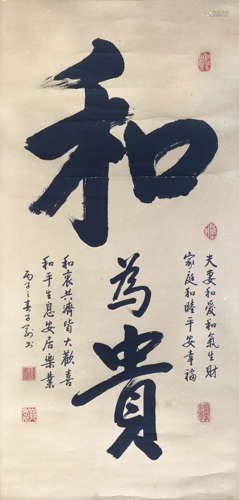 和
為
貴
夫妻和愛和氣生財
家庭和睦平安幸福
和衷共濟皆大歡喜
和平生息安居樂業